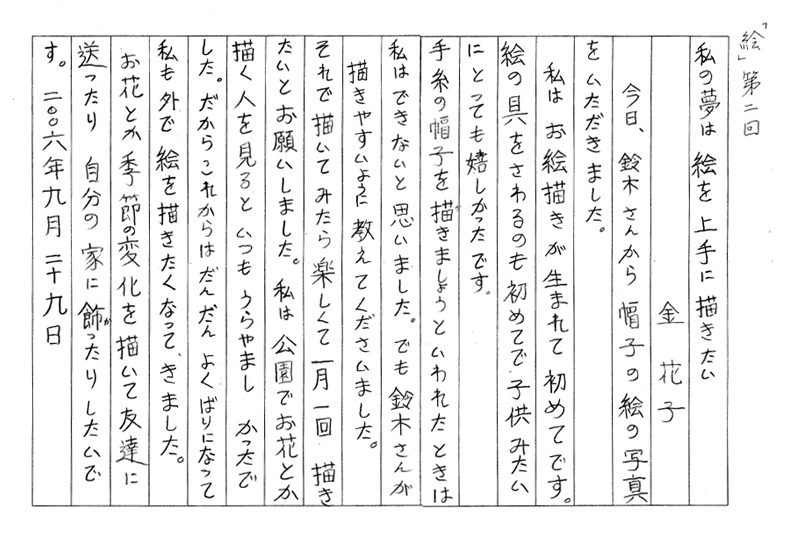 「絵」第二回
私の夢は 絵を 上手に 描きたい
金 花子
今日、鈴木さんから 帽子の 絵の 写真
を いただきました。
私は お絵描きが 生まれて 初めてです。
絵の 具を さわるのも 初めてで 子供 みたい
に とっても 嬉しかったです。
手糸の 帽子を 描きましょうと いわれた ときは
私は できないと 思いました。でも 鈴木さんが
描きやすいように 教えて くださいました。
それで 描いて みたら 楽しくて 一月 一回 描き
たいと お願いしました。私は 公園で お花とか
描く 人を 見ると いつも うらやまし かったで
した。だから これからは だんだん よくばりに なって
私も 外で 絵を 描きたく なって、きました。
お花とか 季節の 変化を 描いて 友達に
送ったり 自分の 家に 飾かったり したいで
す。 二〇〇六年 九月 二十九日